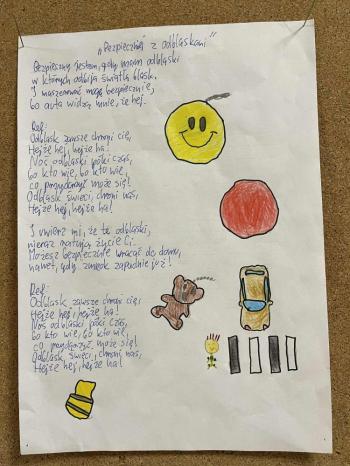 „Bezpieczniej z odblaskami"
Bezpieczny jestem, gdy mam odblaski
w których odbija światła blask.
I maszerować mogę bezpiecznie,
bo auta widzą mnie, że hej.
Ref:
Odblask zawsze chroni cię,
Hejże hej, hejże ha!
Noś odblaski póki czas,
bo kto wie, bo kto wie,
co przydarzyć może się!
Odblask świeci, chroni nas,
Hejże hej, hejże ha!
I uwierz mi, że te odblaski,
nieraz ratują życie Ci.
Możesz bezpiecznie wracać do domu,
nawet, gdy zmrok zapadnie już!
Ref:
Odblask zawsze chroni cię,
Hejże hej, hejże ha!
Noś odblaski póki czas,
bo kto wie, bo kto wie,
co przydarzyć może się!
Odblask, świeci, chroni nas,
Hejże hej, hejże ha!